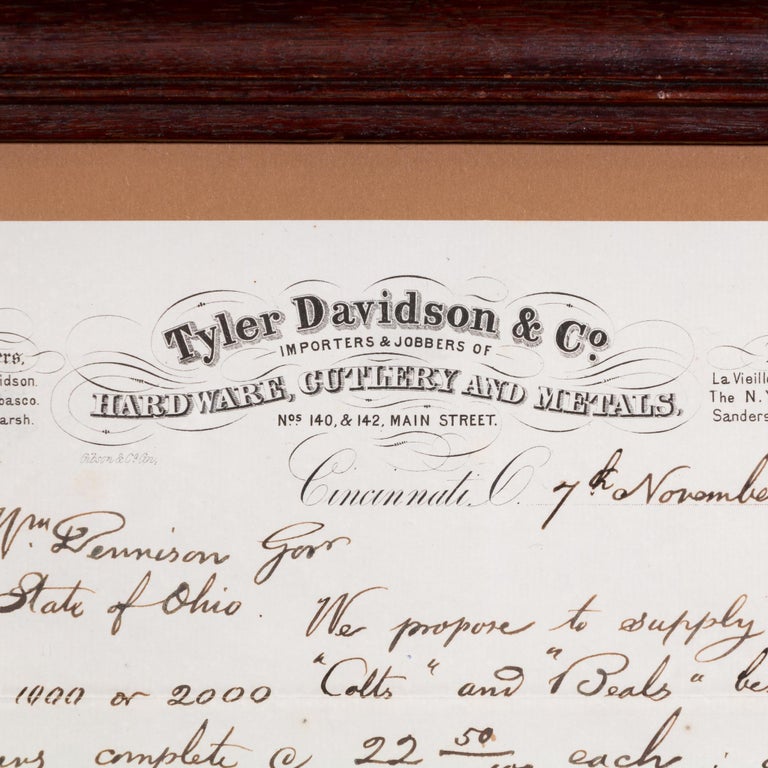 Tyler Davidson & Co.
IMPORTERS & JOBBERS OF
HARDWARE, CUTLERY AND METALS,
Nos 140, & 142, MAIN STREET.
ers,
idson.
basco.
arsh.
La Vieille
The N.Y
Sanders
Gibson & Co. Cin,
Cincinnati, O. 7th November
Wm Dennison Govr
State of Ohio. We propose to supply
1000 or 2000 "Colts" and "Beals" be
complete @ 22 50/100 each ;